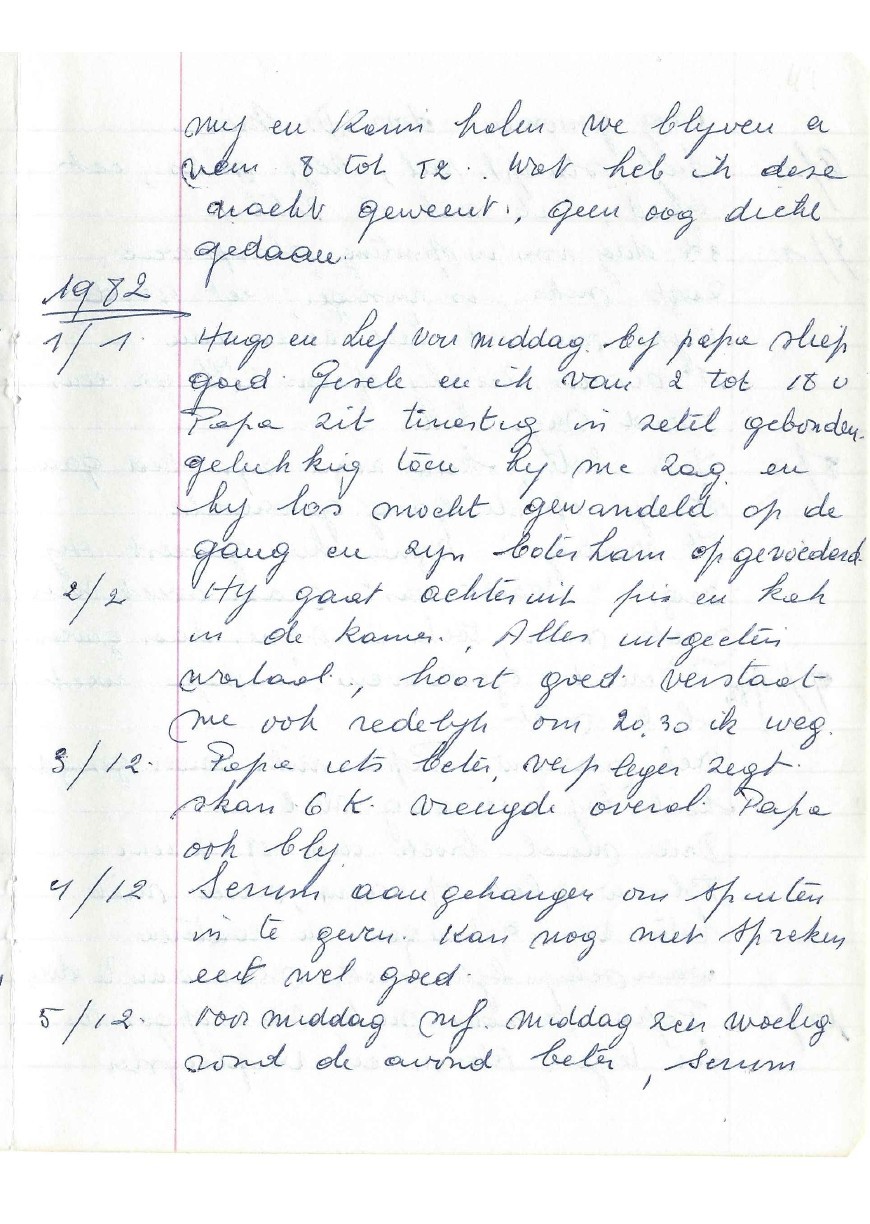 my en Karin halen we blyven a
van 8 tot 12. Wat heb ik deze
nacht geweent., geen oog dicht
gedaan.
1982
1/1. Hugo en Lief voormiddag. by papa sliep
goed. Gisele en ik van 2 tot 18 u
Papa zit in zetel gebonden.
gelukkig toen hy me zag. en
hy los mocht gewandeld op de
gang en zyn boterham opgevoederd.
2/2 Hy gaat achteruit pis en kak
in de kamer., Alles uit-geeten
, hoort goed. verstaat
me ook redelyk om 20.30 ik weg.
3/12. Papa iets beter, verpleger zegt.
skan 6 K. vreugde overal. Papa
ook bly.
4/12 Serum aangehangen om spuiten
in te geven. Kan nog niet spreken
eet wel goed.
5/12. Voormiddag middag zeer woelig
rond de avond beter, Serum